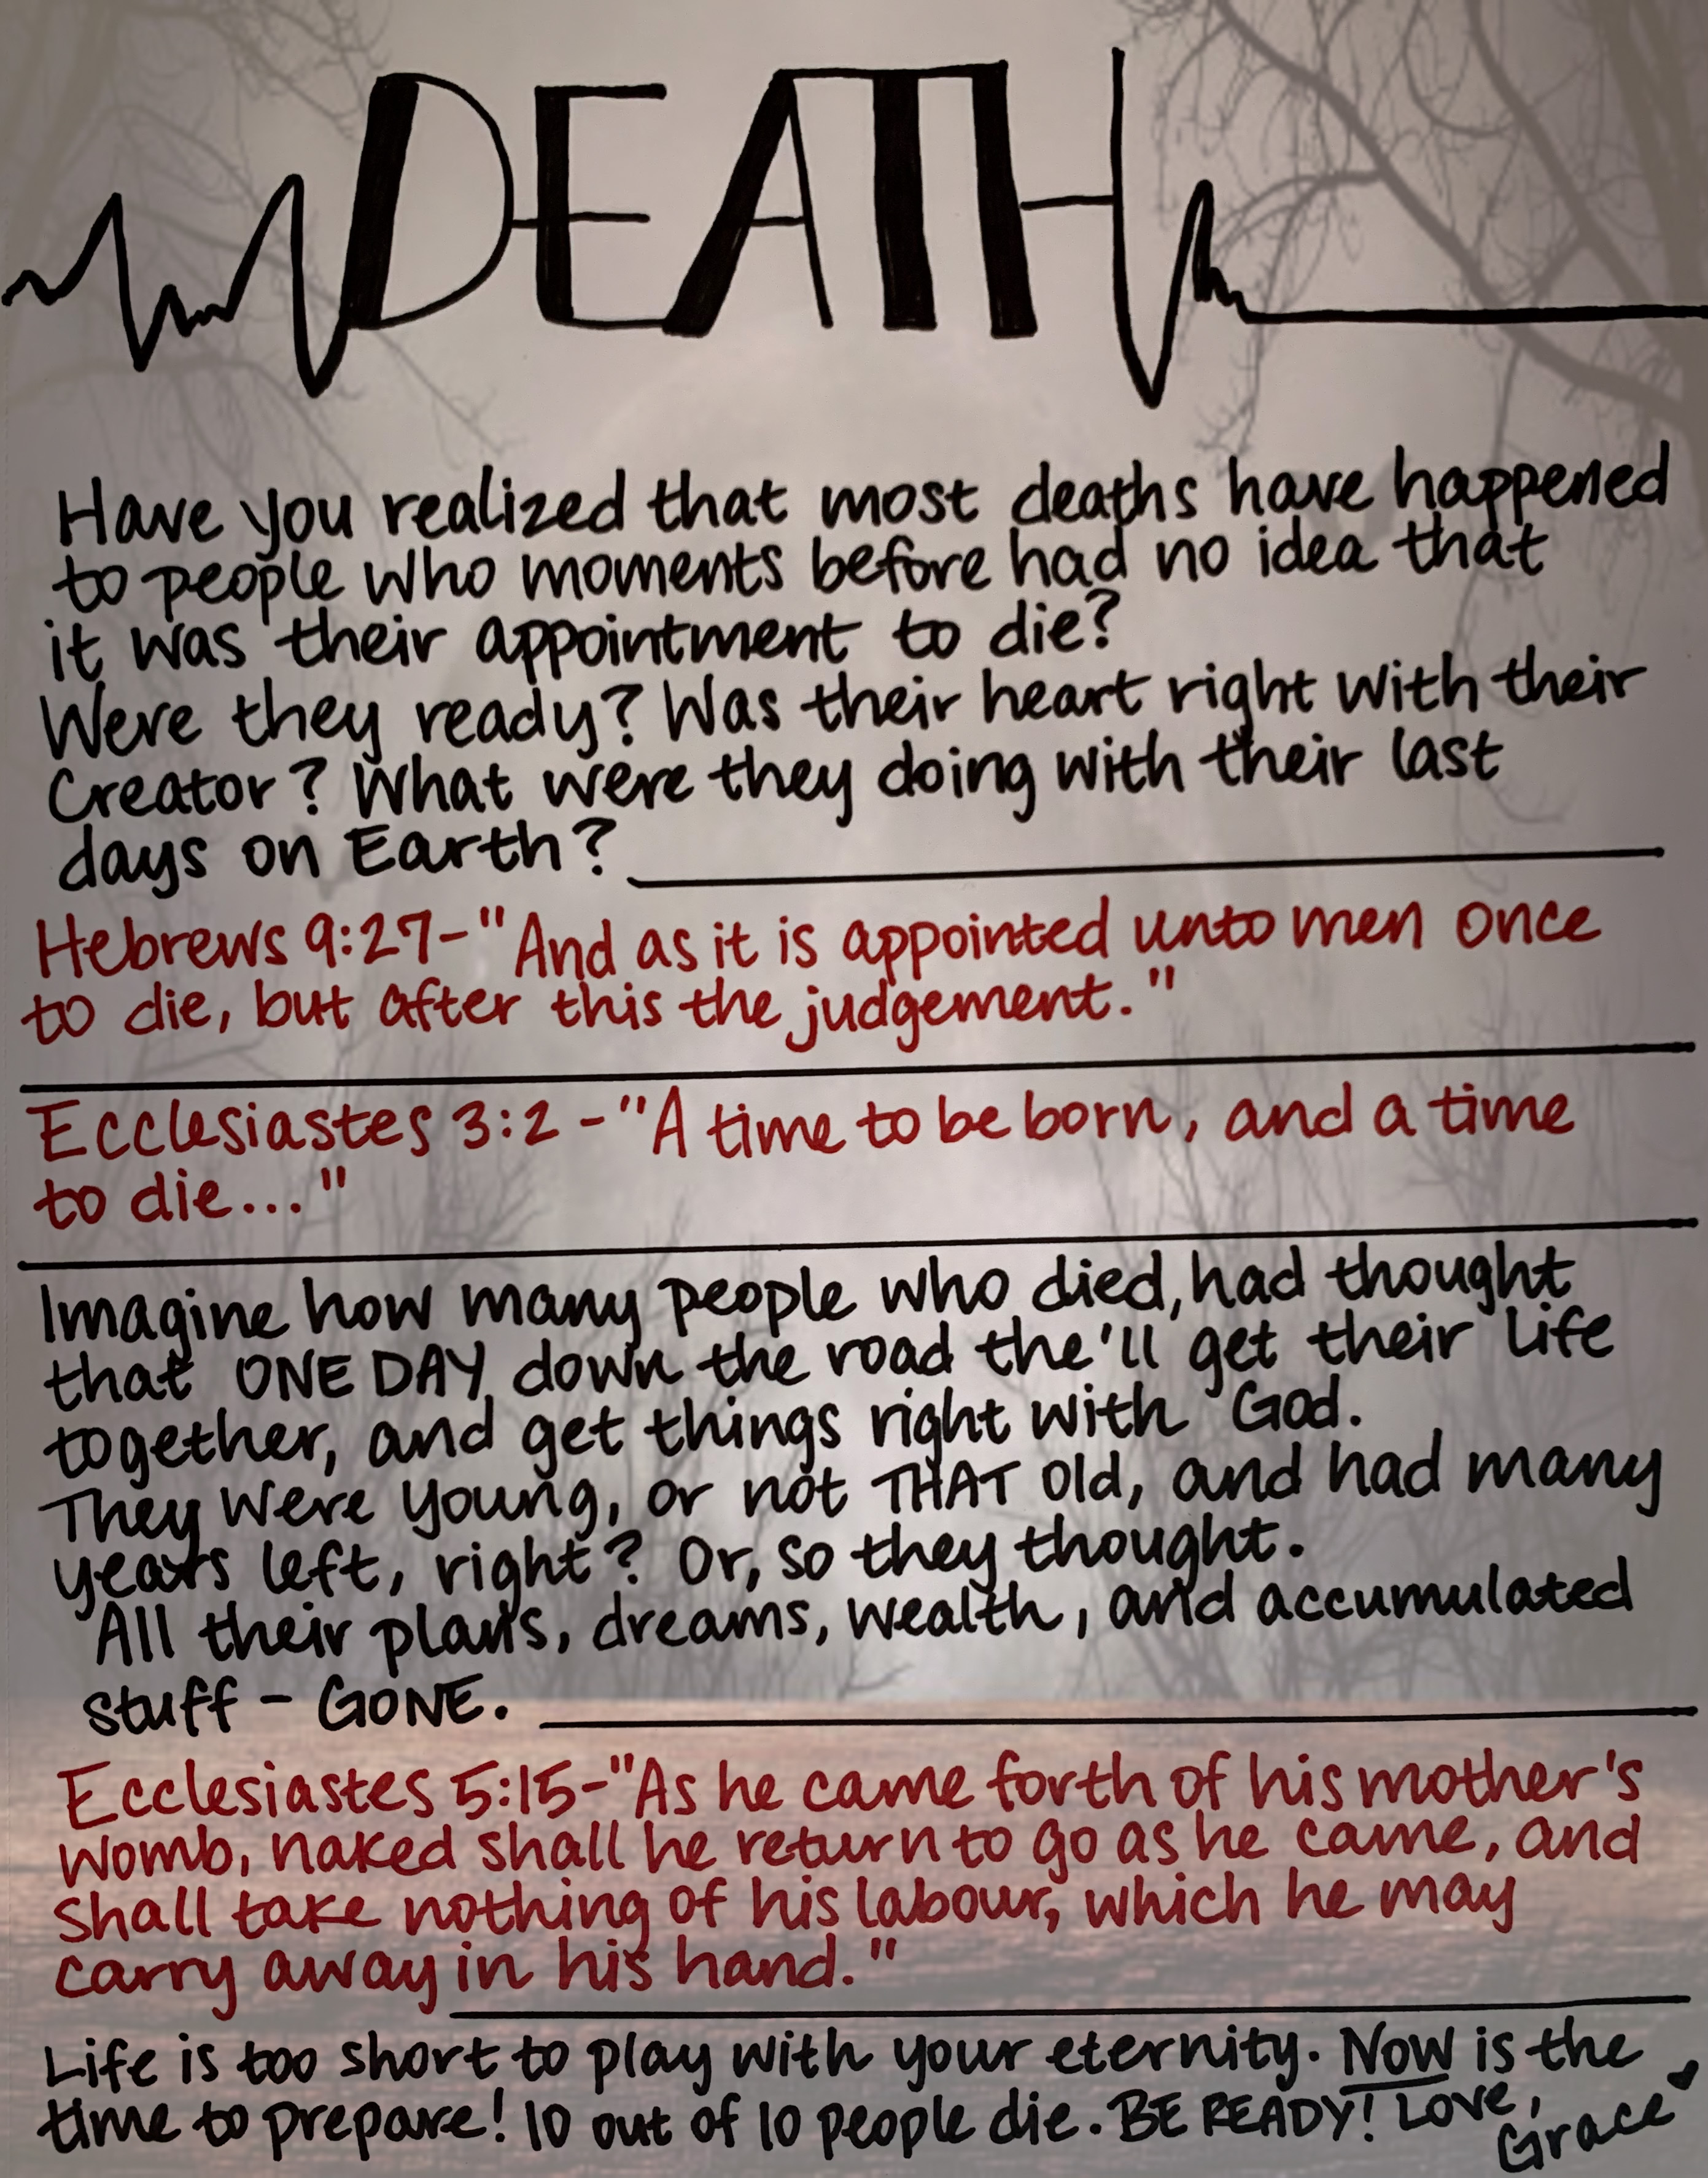 DEATH
Have you realized that most deaths have happened
to people who moments before had no idea that
it was their appointment to die?
Were they ready? Was their heart right with their
Creator? What were they doing with their last
days on Earth?
Hebrews 9:27-"And as it is appointed unto men once
to die, but after this the judgement."
Ecclesiastes 3:2-"A time to be born, and a time
to die..."
Imagine how many people who died, had thought
that ONE DAY down the road the'll get their life
together, and get things right with God.
They were young, or not THAT old, and had many
years left, right? Or, so they thought.
All their plans, dreams, wealth, and accumulated
stuff - GONE.
Ecclesiastes 5:15-"As he came forth of his mother's
womb, naked shall he return to go as he came, and
shall take nothing of his labour, which he may
carry away in his hand."
Life is too short to play with your eternity. Now is the
time to prepare! 10 out of 10 people die. BE READY! Love,
Grace